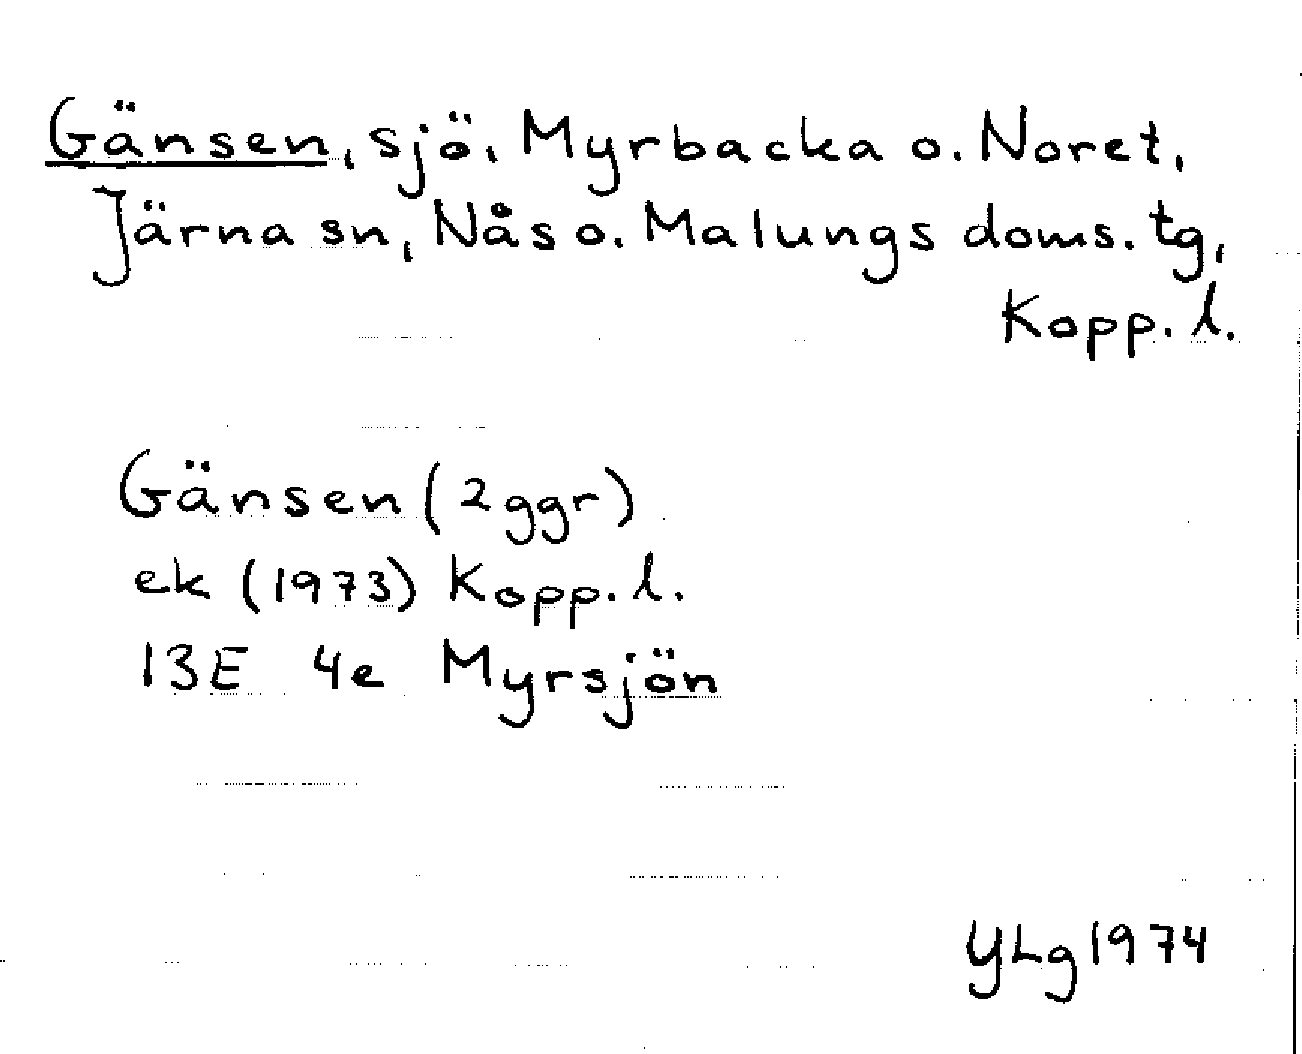 Gänsen, sjö, Myrbacka o. Noret,
Järna sn, Nås o. Malungs doms. tg,
Kopp. l.
Gänsen (2 ggr)
ek (1973) Kopp. l.
13E 4e Myrsjön
YLg 1974